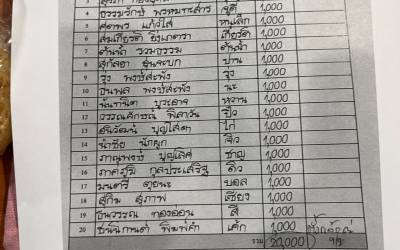 4 ธรรมวิทย์ พรหมทาสาร จูดี้ 1,000
5 ศตพร แก้วใส 1,000
6 สมเกียรติ ยิ่งเกตรา เกียรติ 1,000
7 ต้นน้ำ รวมธรรม ต้นน้ำ 1,000
8 สุกัลยา ปาน 1,000
9 รุ่ง พงษ์สะพัง รุ่ง 1,000
10 ธนพล พงษ์สะพัง นะ 1,000
11 บุระอาจ หวาน 1,000
12 วรรณลักษณ์ พิลาวัน ปิ๋ว 1,000
13 ธนวัฒน์ บุญใสดา ไก่ 1,000
14 นักผูก จิ๋ว 1,000
15 ภาณุพงษ์ บุญเลิศ ชาญ 1,000
16 ภาคภูมิ กุลประเสริฐ ดิว 1,000
17 มนตรี ตุยนะ บอล 1,000
18 สุกิม สุภาพ เชียง 1,000
19 ธนวรรณ ทองออน สี 1,000
20 ชนนิกานต์ พิมพ์คำ เค้ก 1,000
รวม 20,000